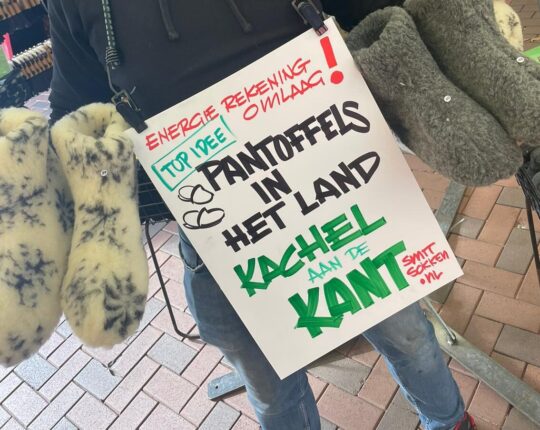 ENERGIE REKENING
OMLAAG!
TOP IDEE
PANTOFFELS
IN
HET LAND
KACHEL
AAN DE
KANT
SMIT
SOKKEN
.NL